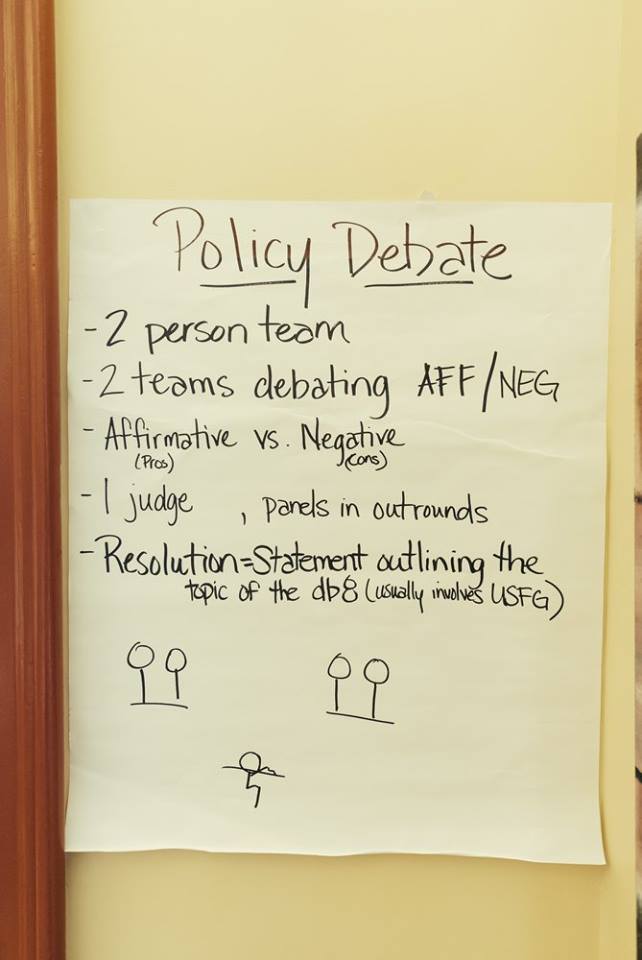 Policy Debate
- 2 person team
- 2 teams debating AFF/NEG
- Affirmative vs. Negative
(Pros) (Cons)
- 1 judge , panels in outrounds
- Resolution=Statement outlining the
topic of the db8 (usually involves USFG)